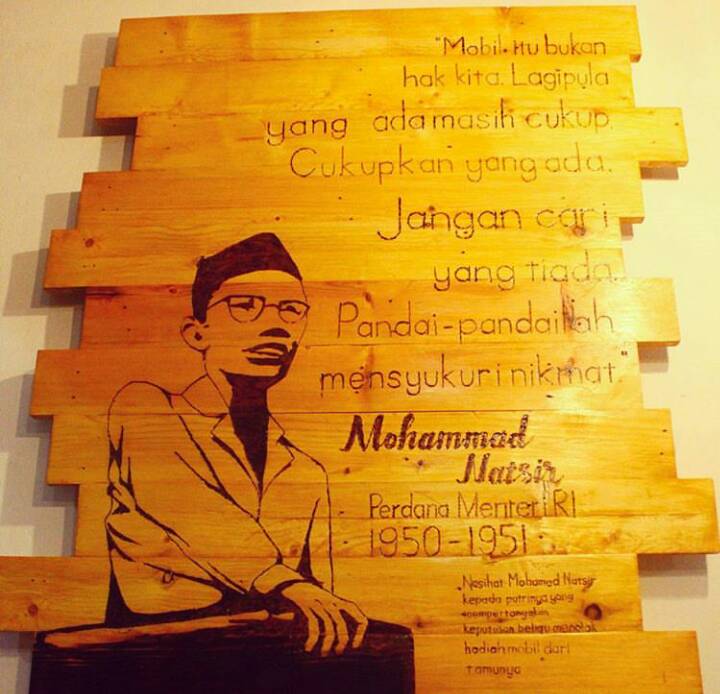 "Mobil itu bukan
hak kita. Lagipula
yang ada masih cukup.
Cukupkan yang ada.
Jangan cari
yang tiada.
Pandai-pandailah
mensyukuri nikmat"
Mohammad
Natsir
Perdana Menteri RI
1950-1951
Nasihat Mohamed Natsir
kepada putrinya yang
mempertanyakan
keputusan beliau menolak
hadiah mobil dari
tamunya